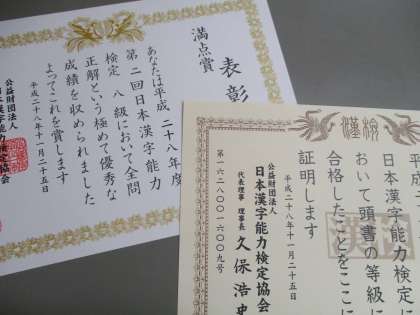 満点賞
表彰
あなたは平成二十八年度
第二回日本漢字能力
検定 八級において全問
正解という極めて優秀な
成績を収められました
よってこれを賞します
平成二十八年十一月二十五日
公益財団法人
日本漢字能力検定協会
漢検
平成二
日本漢字能力検定に
おいて頭書の等級に
合格したことをここに
証明します
平成二十八年十一月二十五日
公益財団法人
日本漢字能力検定協会
代表理事 理事長 久保浩史
第一六二八〇〇一六〇〇九号